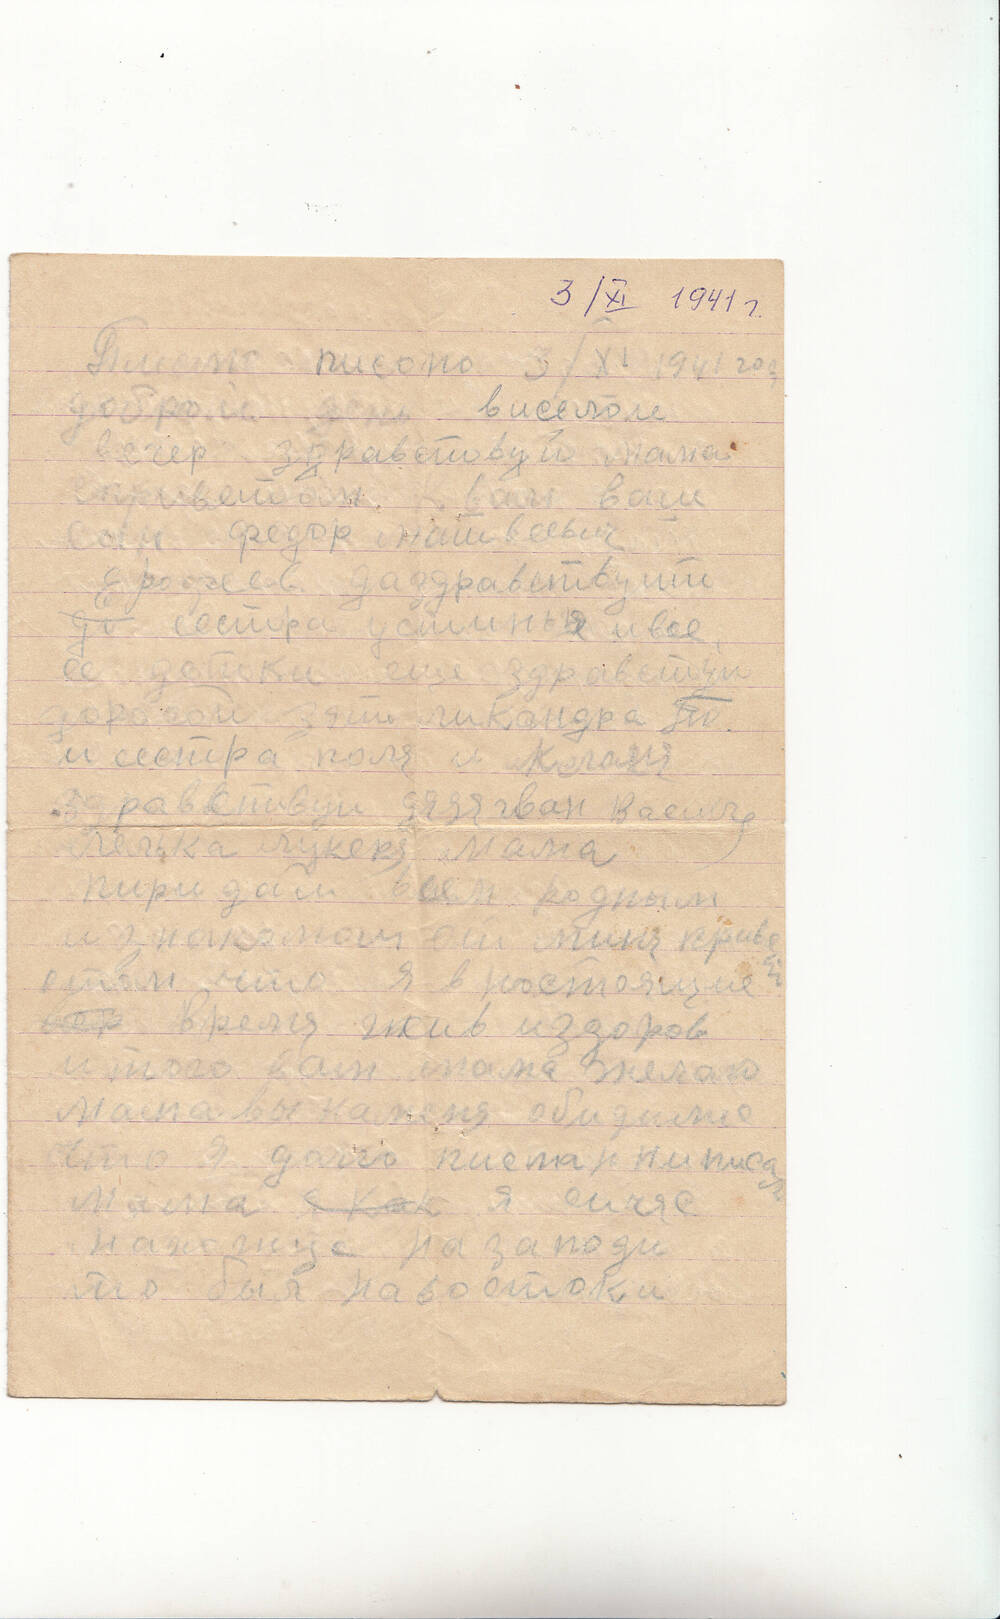 3/XI 1941 г.
писоно 3/XI 1941 год
доброй день виселой
вечер здравствуй мама
сприветом квам ваш
сын Федор Матвеевич
Ерофеев даздравствуит
сестра устинья и все
ее детки еще здраветуи
дорогой зять никандра
и сестра поля и
здравствуи дядя Иван Василич
Лелька лукеря Мама
пиридай всем родным
и знакомым от миня приве
етом что я в ностоящие
время жив издоров
итого вам мама желаю
Мама вы на меня обидились
Что я долго писма ниписал
Мама я как я сичяс
нахожусь назапади
то был навостоки